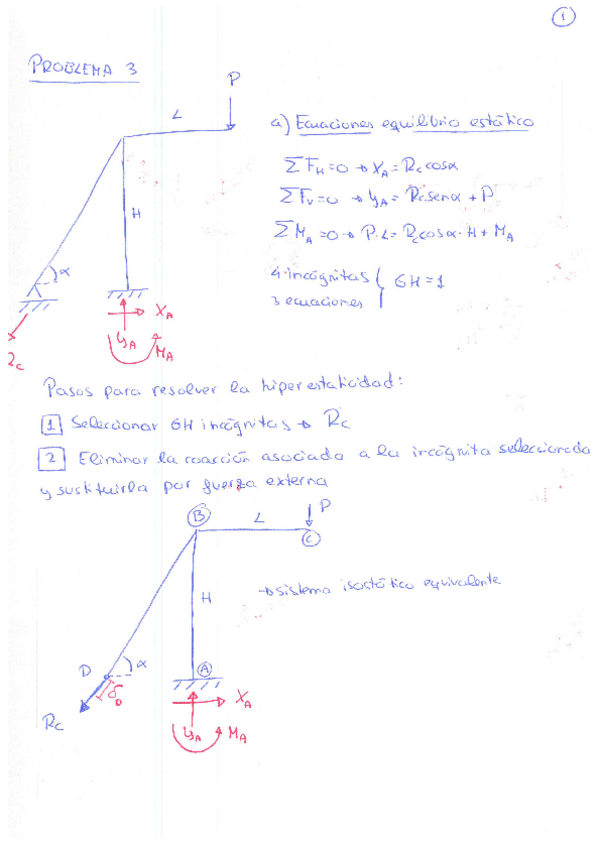 1
PROBLEMA 3
P
L
a) Ecuaciones equilibrio estático
ΣF_H=0 → X_A = R_c cosα
ΣF_V=0 → y_A = R_c senα + P
H
ΣM_A=0 → P·L = R_c cosα·H + M_A
α
4 incógnitas { GH=1
3 ecuaciones
X_A
y_A
M_A
R_c
Pasos para resolver la hiperestaticidad:
1 Seleccionar GH incógnitas → R_c
2 Eliminar la coacción asociada a la incógnita seleccionada
y sustituirla por fuerza externa
P
B
L
C
→ sistema isostático equivalente
H
D
α
A
δ_D
R_c
X_A
y_A
M_A